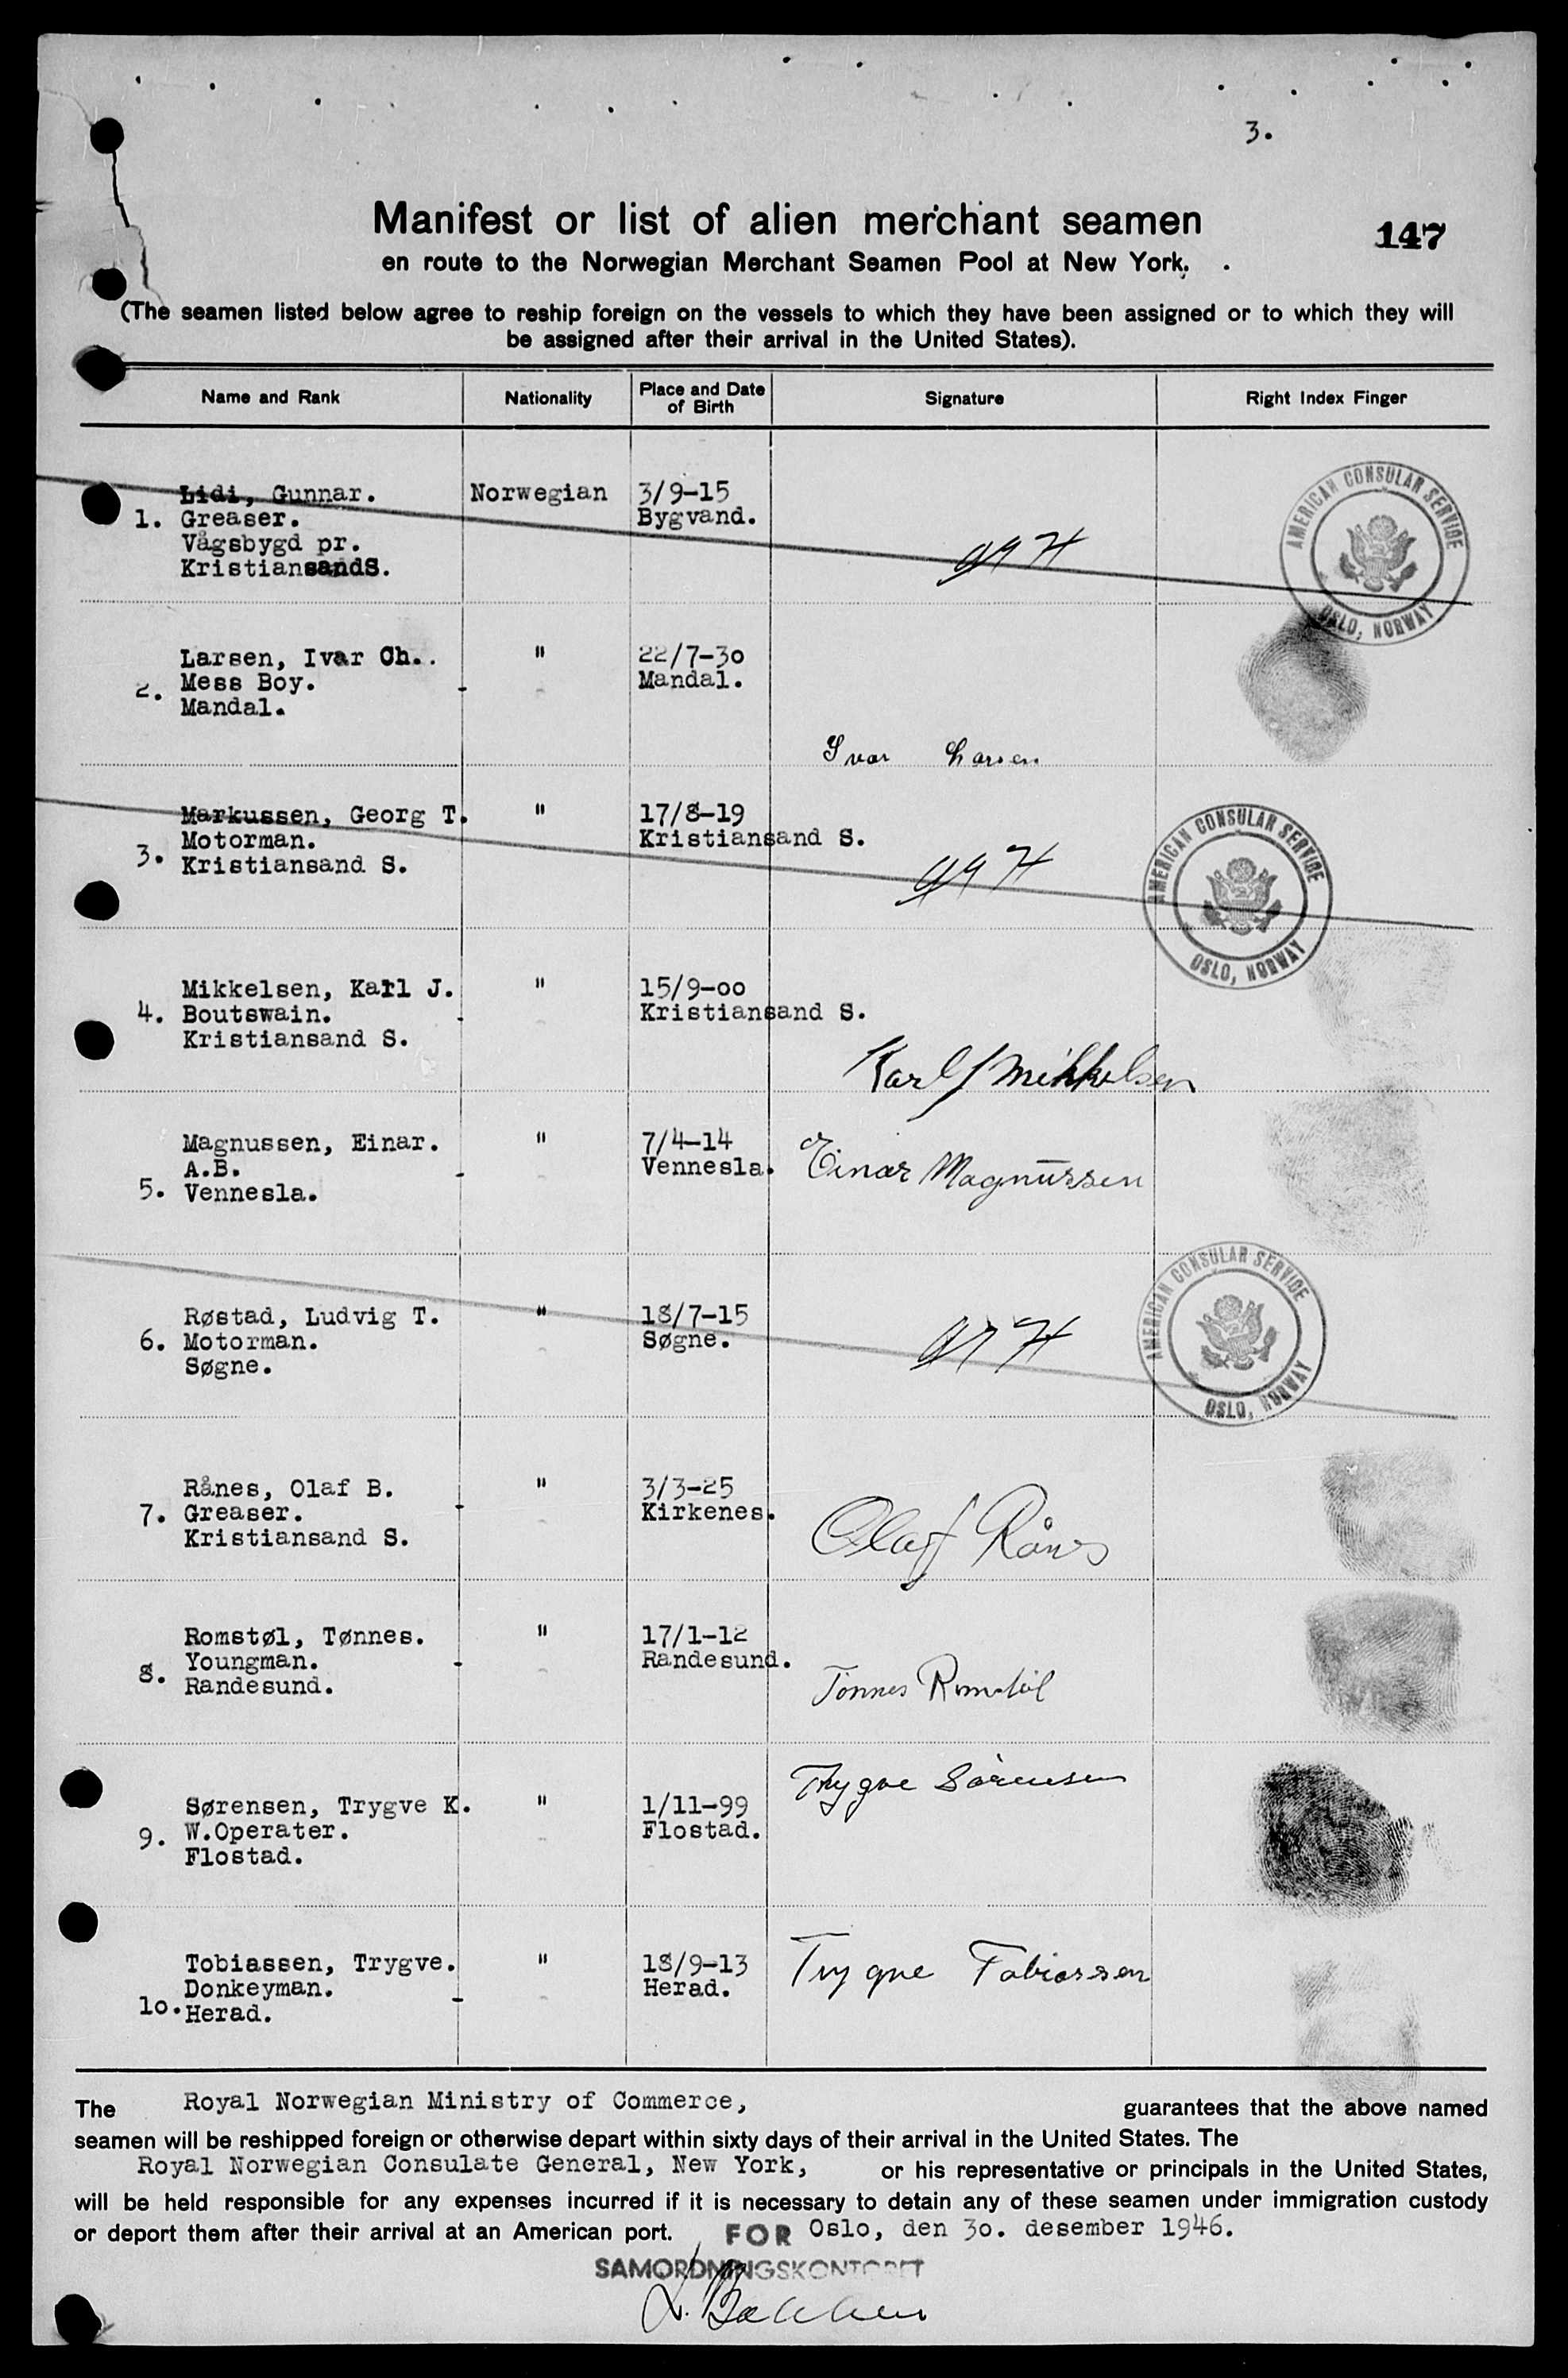 3.
Manifest or list of alien merchant seamen
147
en route to the Norwegian Merchant Seamen Pool at New York.
(The seamen listed below agree to reship foreign on the vessels to which they have been assigned or to which they will
be assigned after their arrival in the United States).
Name and Rank Nationality Place and Date of Birth Signature Right Index Finger
Lidi, Gunnar. Norwegian 3/9-15
1. Greaser. Bygvand.
Vågsbygd pr.
KristiansandS.
AMERICAN CONSULAR SERVICE
OSLO, NORWAY
Larsen, Ivar Ch.. " 22/7-30
2. Mess Boy. Mandal.
Mandal.
Ivar Larsen
Markussen, Georg T. " 17/8-19
Motorman. Kristiansand S.
3. Kristiansand S.
AMERICAN CONSULAR SERVICE
OSLO, NORWAY
Mikkelsen, Karl J. " 15/9-00
4. Boutswain. Kristiansand S.
Kristiansand S.
Karl J Mikkelsen
Magnussen, Einar. " 7/4-14
A.B. Vennesla. Einar Magnussen
5. Vennesla.
Røstad, Ludvig T. " 18/7-15
6. Motorman. Søgne.
Søgne.
AMERICAN CONSULAR SERVICE
OSLO, NORWAY
Rånes, Olaf B. " 3/3-25
7. Greaser. Kirkenes.
Kristiansand S.
Olaf Rånes
Romstøl, Tønnes. " 17/1-12
8. Youngman. Randesund.
Randesund.
Tønnes Romstøl
Trygve Sørensen
Sørensen, Trygve K. " 1/11-99
9. W.Operater. Flostad.
Flostad.
Tobiassen, Trygve. " 18/9-13 Trygve Tobiassen
Donkeyman. Herad.
10. Herad.
The Royal Norwegian Ministry of Commerce, guarantees that the above named
seamen will be reshipped foreign or otherwise depart within sixty days of their arrival in the United States. The
Royal Norwegian Consulate General, New York, or his representative or principals in the United States,
will be held responsible for any expenses incurred if it is necessary to detain any of these seamen under immigration custody
or deport them after their arrival at an American port. FOR Oslo, den 30. desember 1946.
SAMORDNINGSKONTORET